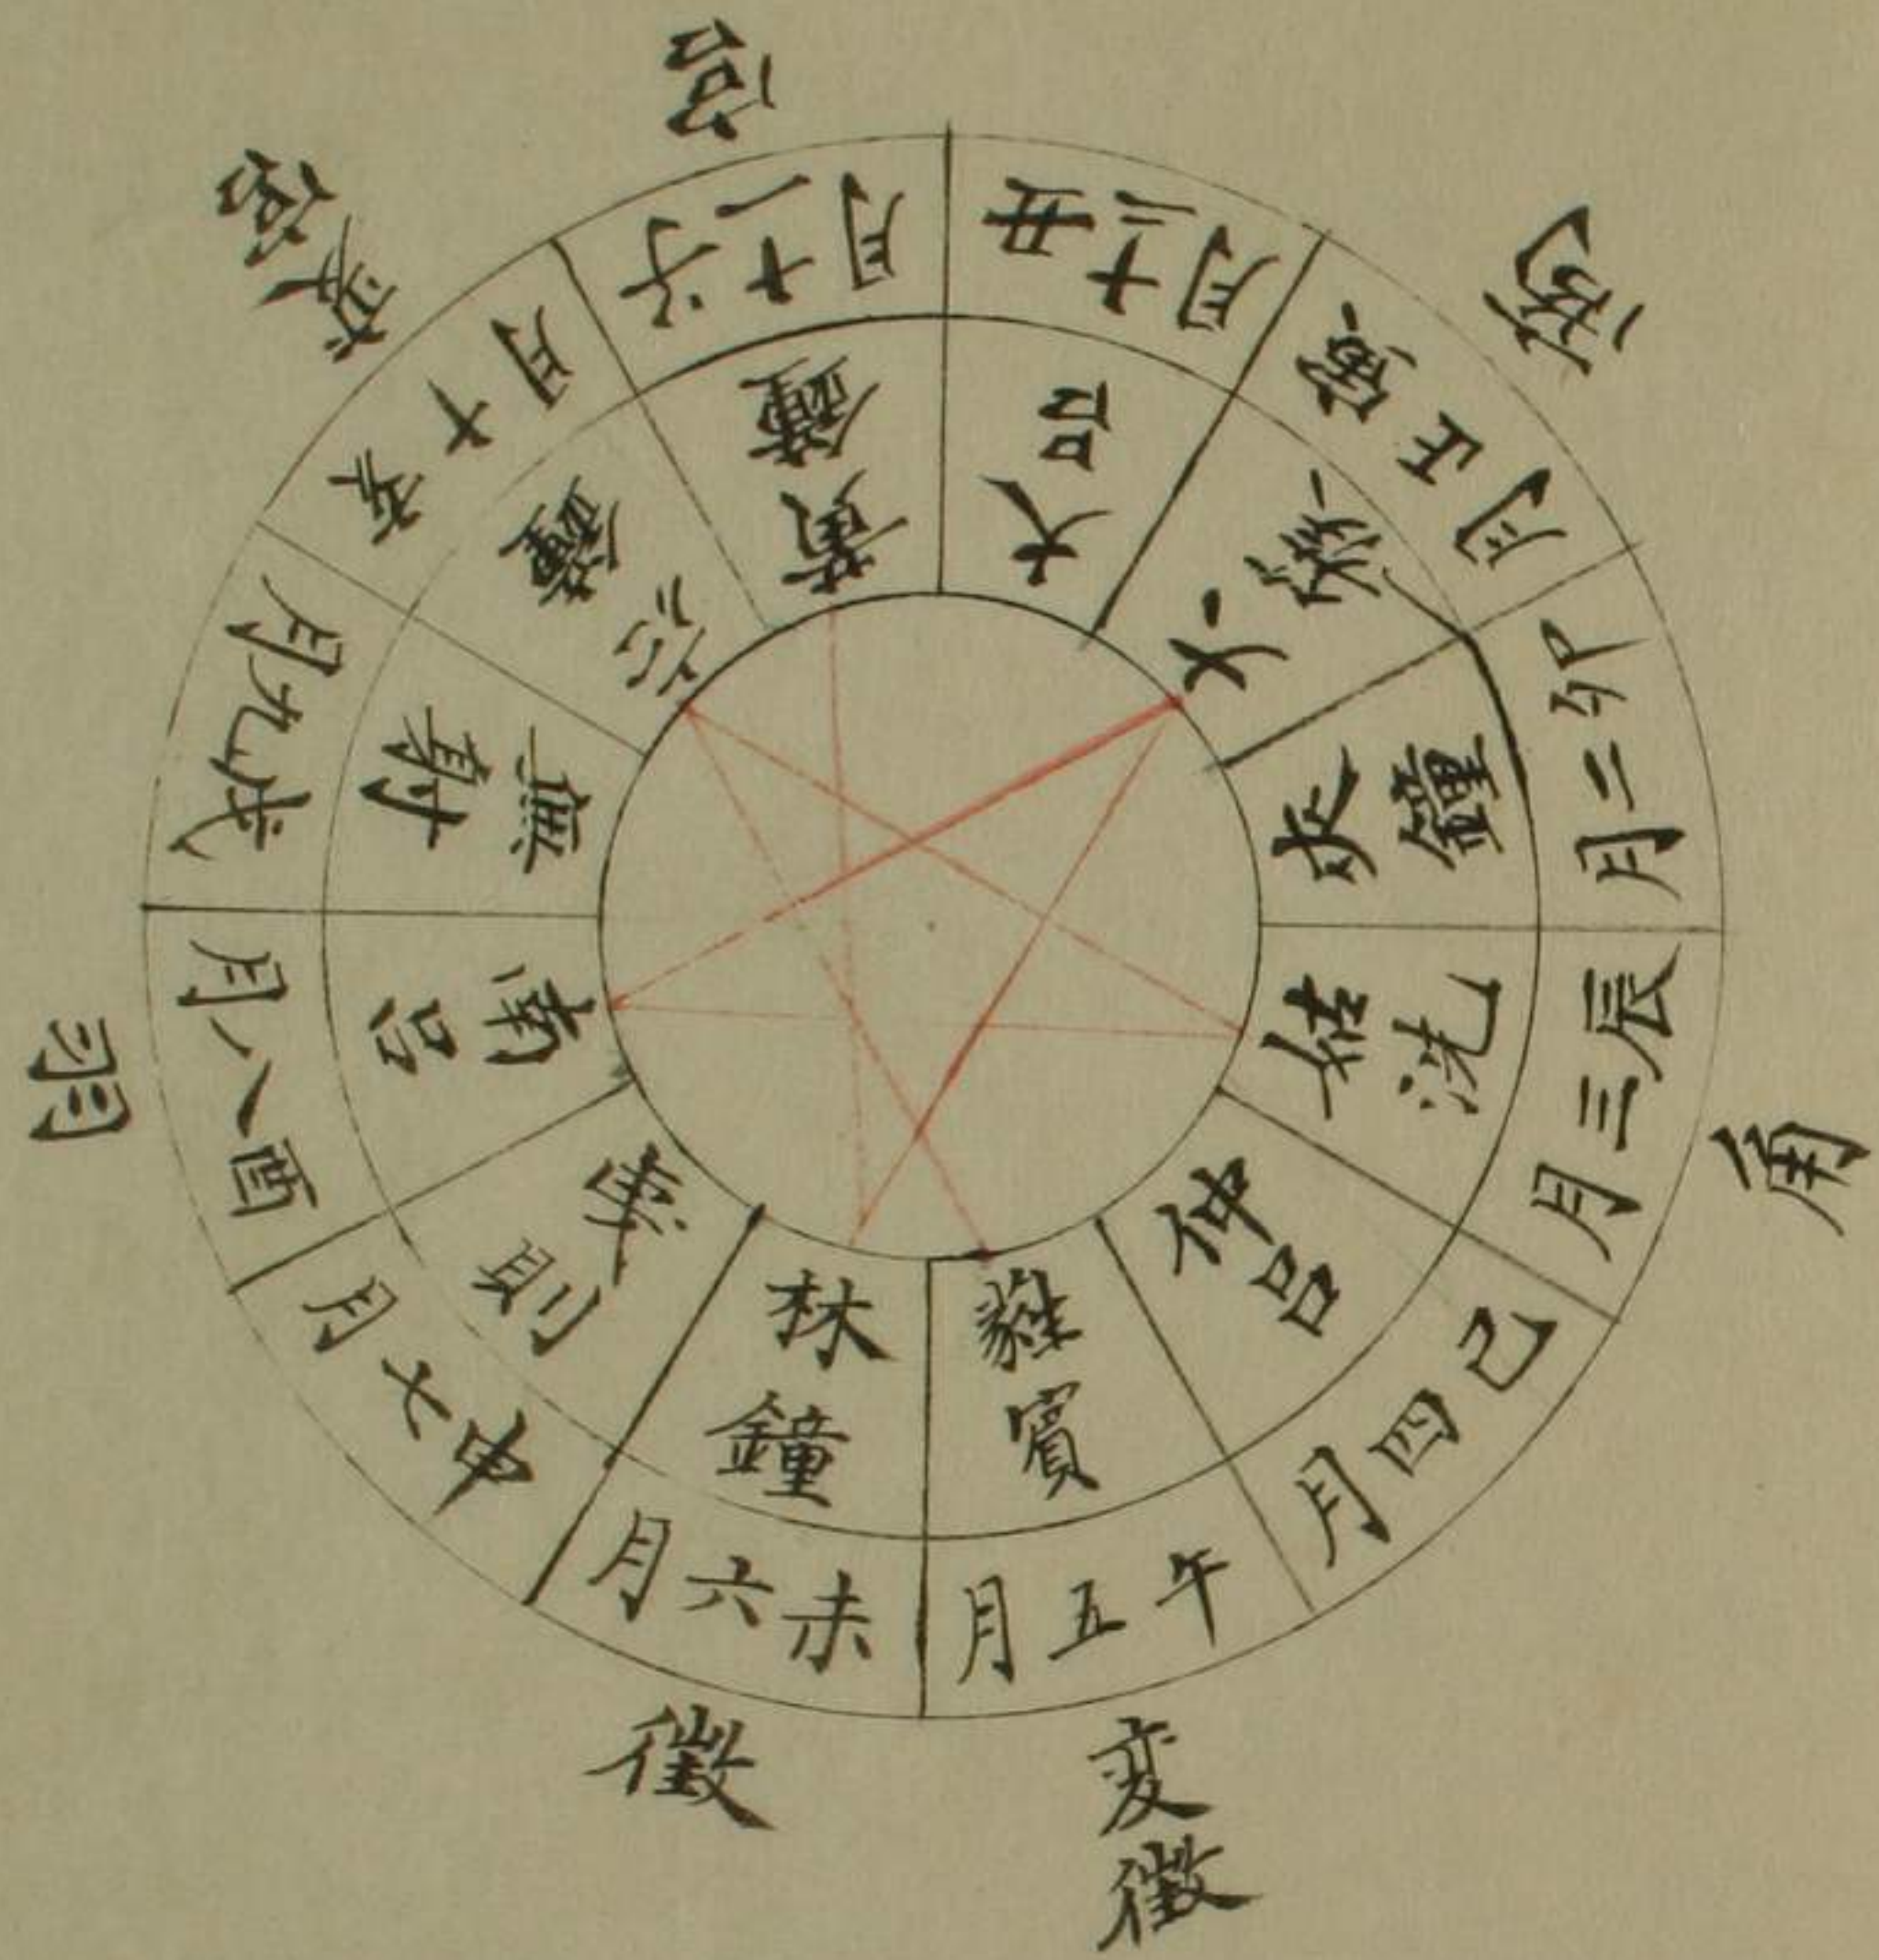 宮
商
角
変徵
徵
羽
変宮
子十一月
丑十二月
寅正月
卯二月
辰三月
巳四月
午五月
未六月
申七月
酉八月
戌九月
亥十月
黄鐘
大呂
太簇
夾鐘
姑洗
仲呂
蕤賓
林鐘
夷則
南呂
無射
応鐘